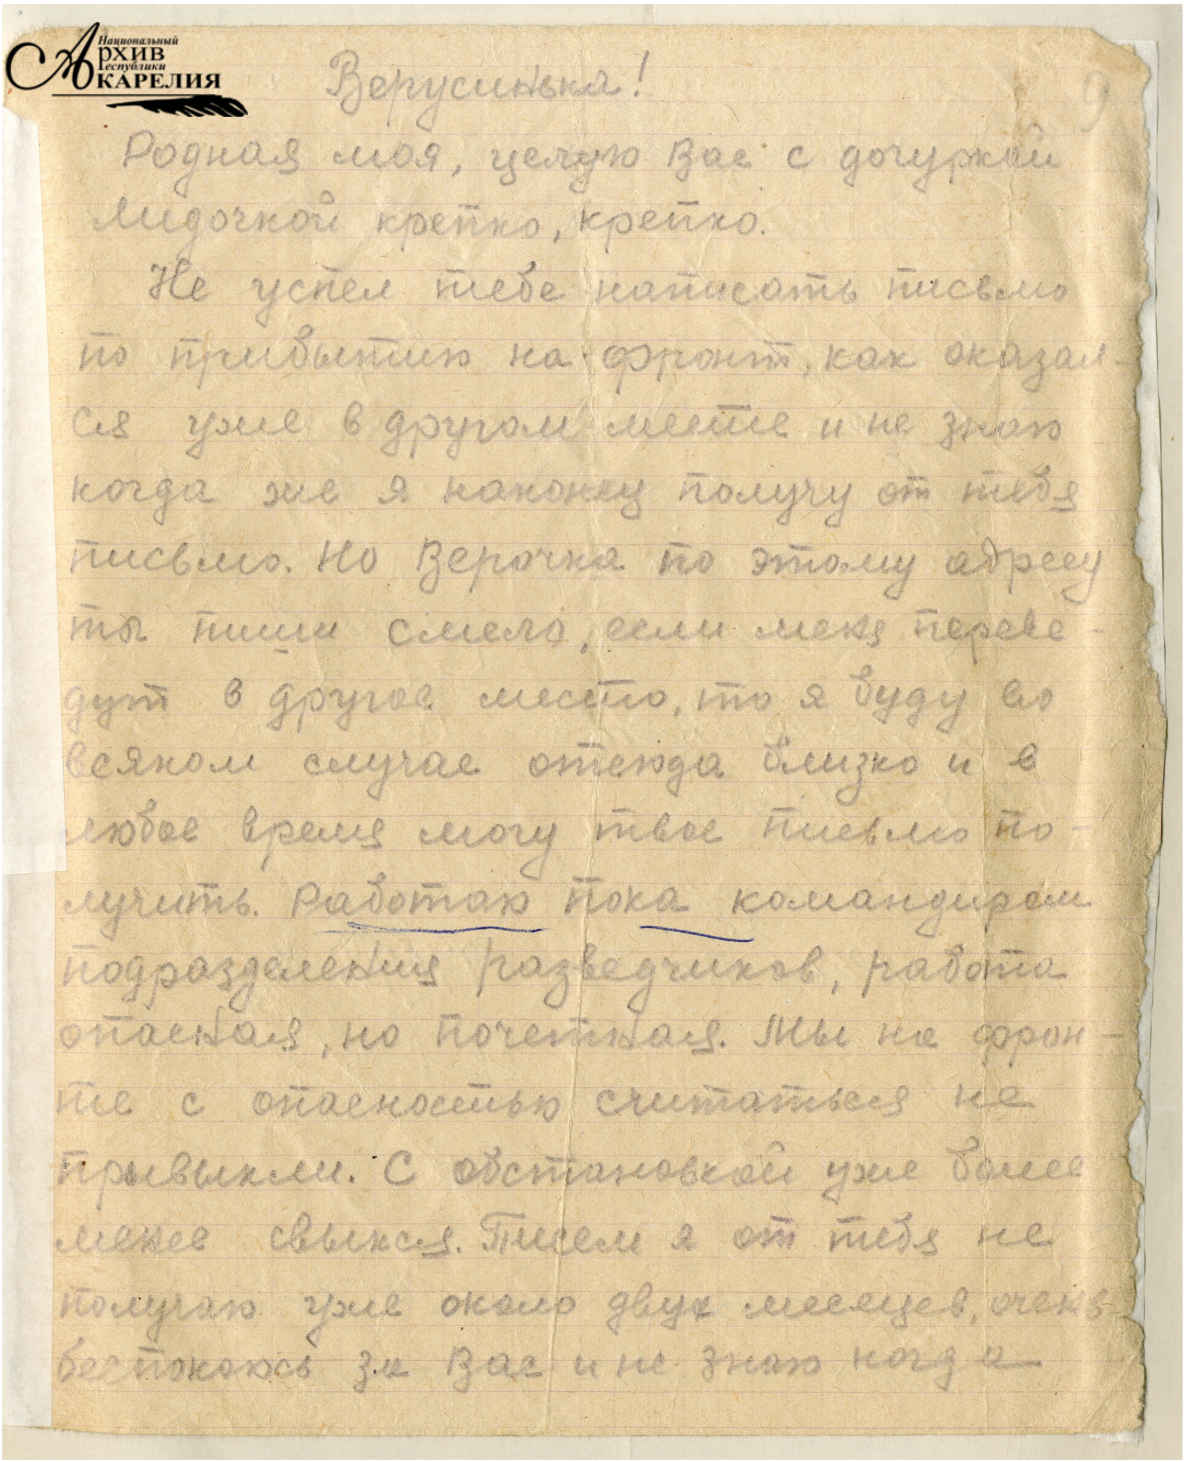 Национальный
Архив
Республики
Карелия
9
Верусинька!
Родная моя, целую Вас с дочуркой
Лидочкой крепко, крепко.
Не успел тебе написать письмо
по прибытию на фронт, как оказал-
ся уже в другом месте и не знаю
когда же я наконец получу от тебя
письмо. Но Верочка по этому адресу
ты пиши смело, если меня переве-
дут в другое место, то я буду во
всяком случае отсюда близко и в
любое время могу твое письмо по-
лучить. Работаю пока командиром
подразделения разведчиков, работа
опасная, но почетная. Мы на фрон-
те с опасностью считаться не
привыкли. С обстановкой уже более
менее свыкся. Писем я от тебя не
получаю уже около двух месяцев, очень
беспокоюсь за Вас и не знаю когда